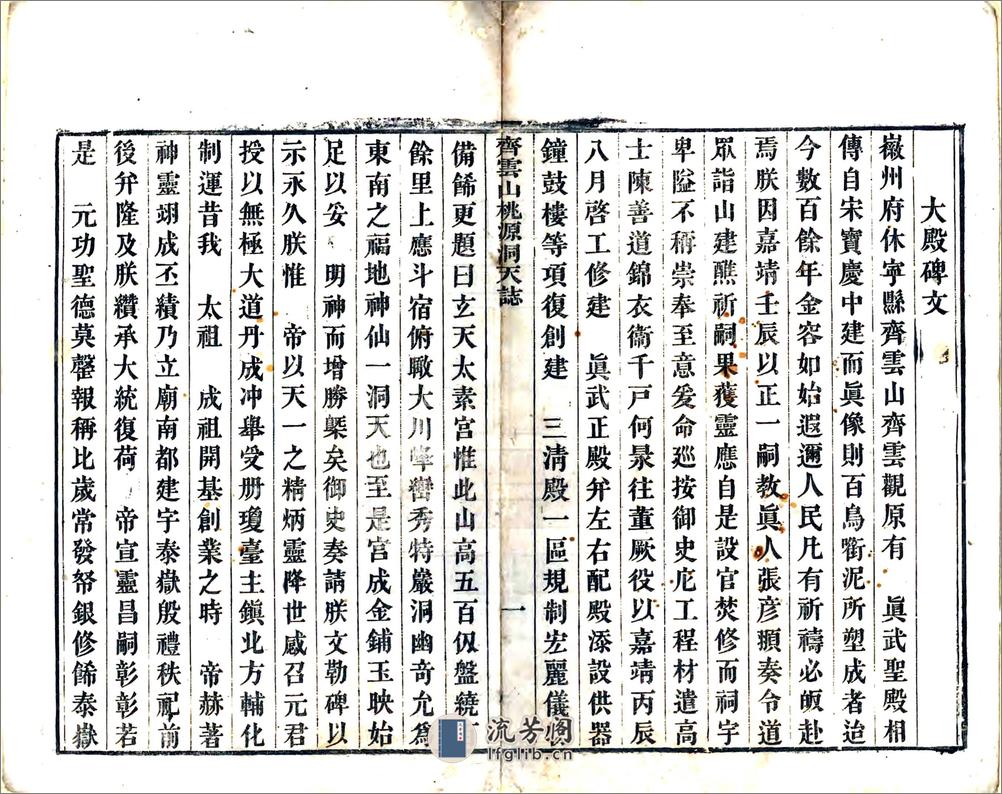 大殿碑文
嶶州府休寧縣齊雲山齊雲觀原有　眞武聖殿相
傳自宋寶慶中建而眞像則百鳥銜泥所塑成者迨
今數百餘年金容如始遐邇人民凡有祈禱必皈赴
焉朕因嘉靖壬辰以正一嗣教眞人張彥頨奏令道
眾詣山建醮祈嗣果獲靈應自是設官焚修而祠宇
卑隘不稱崇奉至意爰命巡按御史庀工程材遣高
士陳善道錦衣衞千戸何㬌往董厥役以嘉靖丙辰
八月啓工修建　眞武正殿幷左右配殿添設供器
鐘鼓樓等項復創建　三清殿一區規制宏麗儀
齊雲山桃源洞天誌
一
備餙更題曰玄天太素宮惟此山高五百仭盤繞
餘里上應斗宿俯瞰大川峰巒秀特巖洞幽奇允爲
東南之福地神仙一洞天也至是官成金鋪玉映始
足以妥　明神而增勝槩矣御史奏請朕文勒碑以
示永久朕惟　帝以天一之精炳靈降世感召元君
授以無極大道丹成冲舉受册瓊臺主鎭北方輔化
制運昔我　太祖　成祖開基創業之時　帝赫著
神靈翊成丕績乃立廟南都建宇泰嶽殷禮秩祀前
後幷隆及朕纘承大統復荷　帝宣靈昌嗣彰彰若
是　元功聖德莫罄報稱比歲常發帑銀修餙泰嶽
流芳阁
lfglib.com